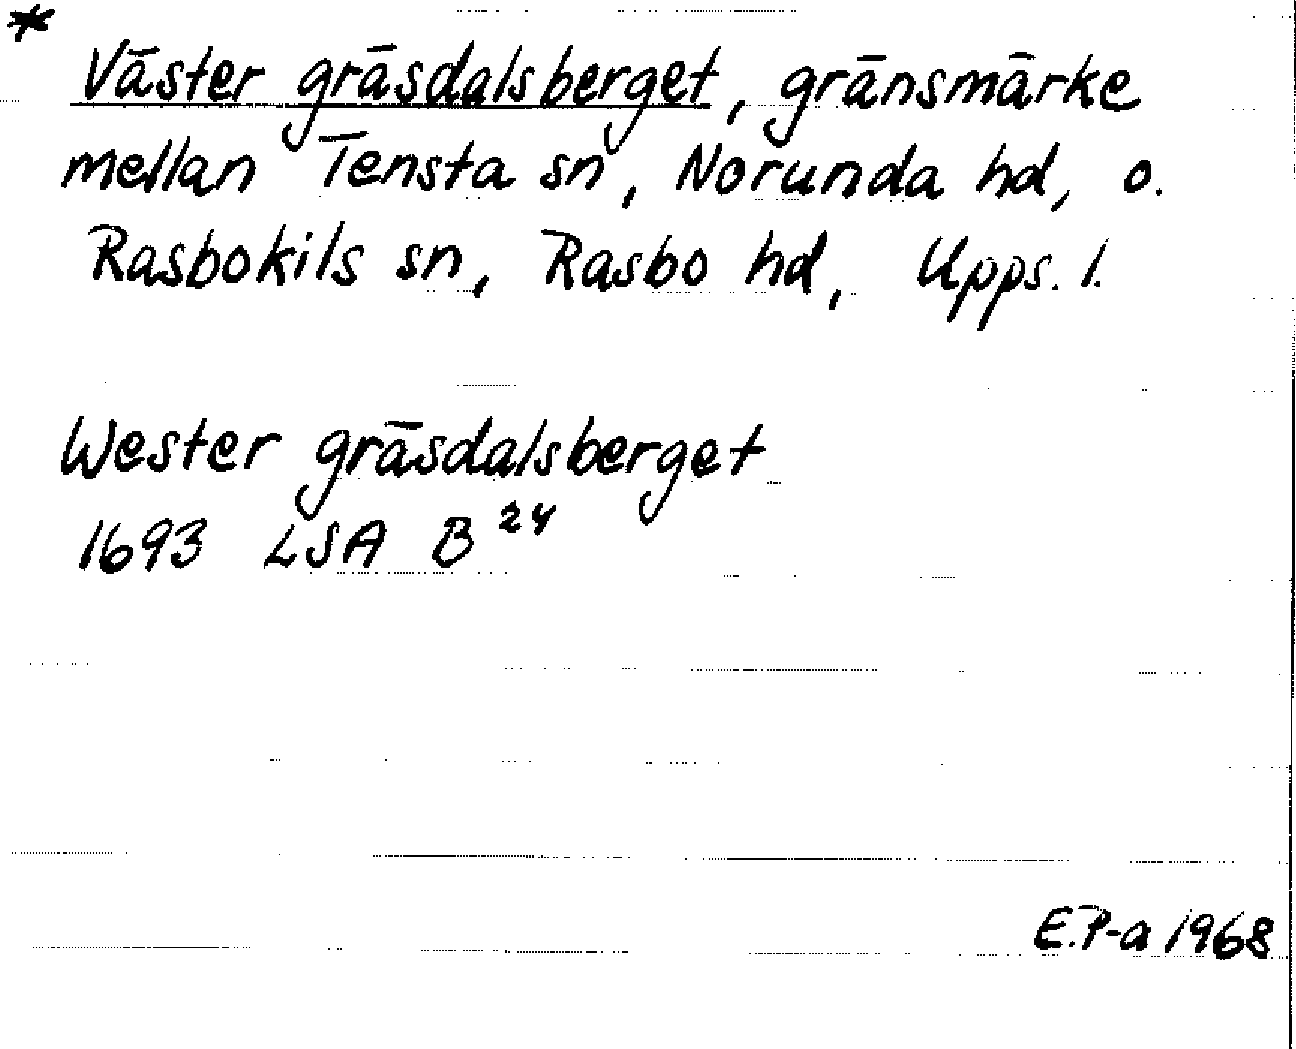 *
Väster gräsdalsberget, gränsmärke
mellan Tensta sn, Norunda hd, o.
Rasbokils sn, Rasbo hd, Upps. l.
Wester gräsdalsberget
1693 LSA B 24
E.P-a 1968